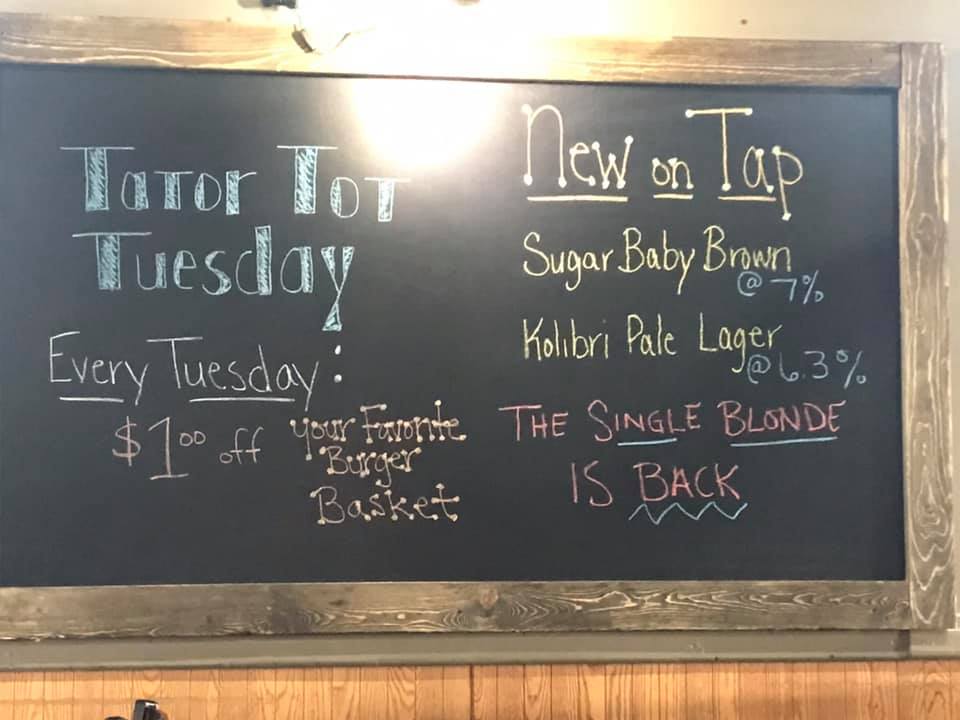 Tator Tot
Tuesday
Every Tuesday:
$1.00 off your Favorite
Burger
Basket
New on Tap
Sugar Baby Brown
@ 7%
Kolibri Pale Lager
@ 6.3%
THE SINGLE BLONDE
IS BACK